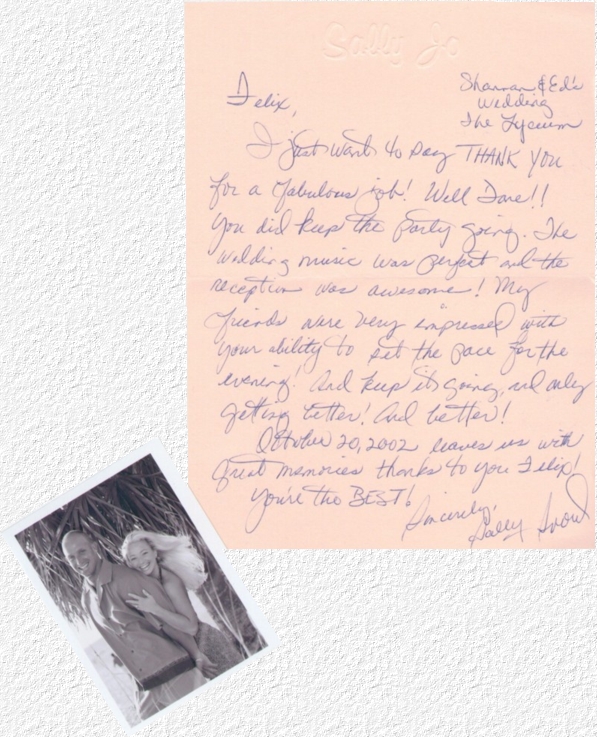 Sally Jo
Shannan & Ed's
Wedding
The Lyceum
Felix,
I just want to say THANK YOU
for a fabulous job! Well Done!!
You did keep the party going. The
wedding music was perfect and the
reception was awesome! My
friends were very impressed with
your ability to set the pace for the
evening! And keep it going, and only
getting better! And better!
October 20, 2002 leaves us with
great memories thanks to you Felix!
You're the BEST!
Sincerely,
Sally